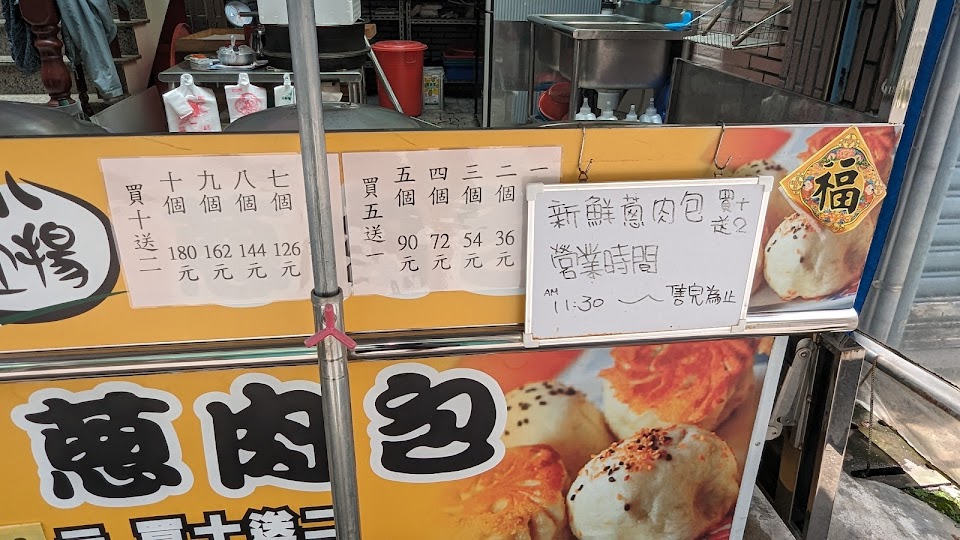 一
二個 36元
三個 54元
四個 72元
五個 90元
買五送一
七個 126元
八個 144元
九個 162元
十個 180元
買十送二
新鮮蔥肉包 買十送2
營業時間
AM 11:30 ～ 售完為止
福
楊
蔥肉包
買十送二